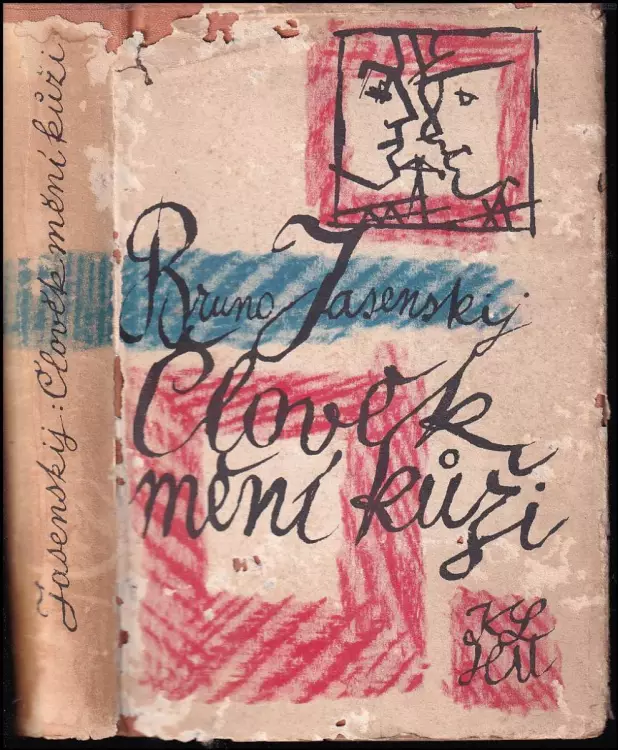 Jasenskij: Člověk mění kůži
Bruno Jasenskij
Člověk
mění kůži
KL
HU